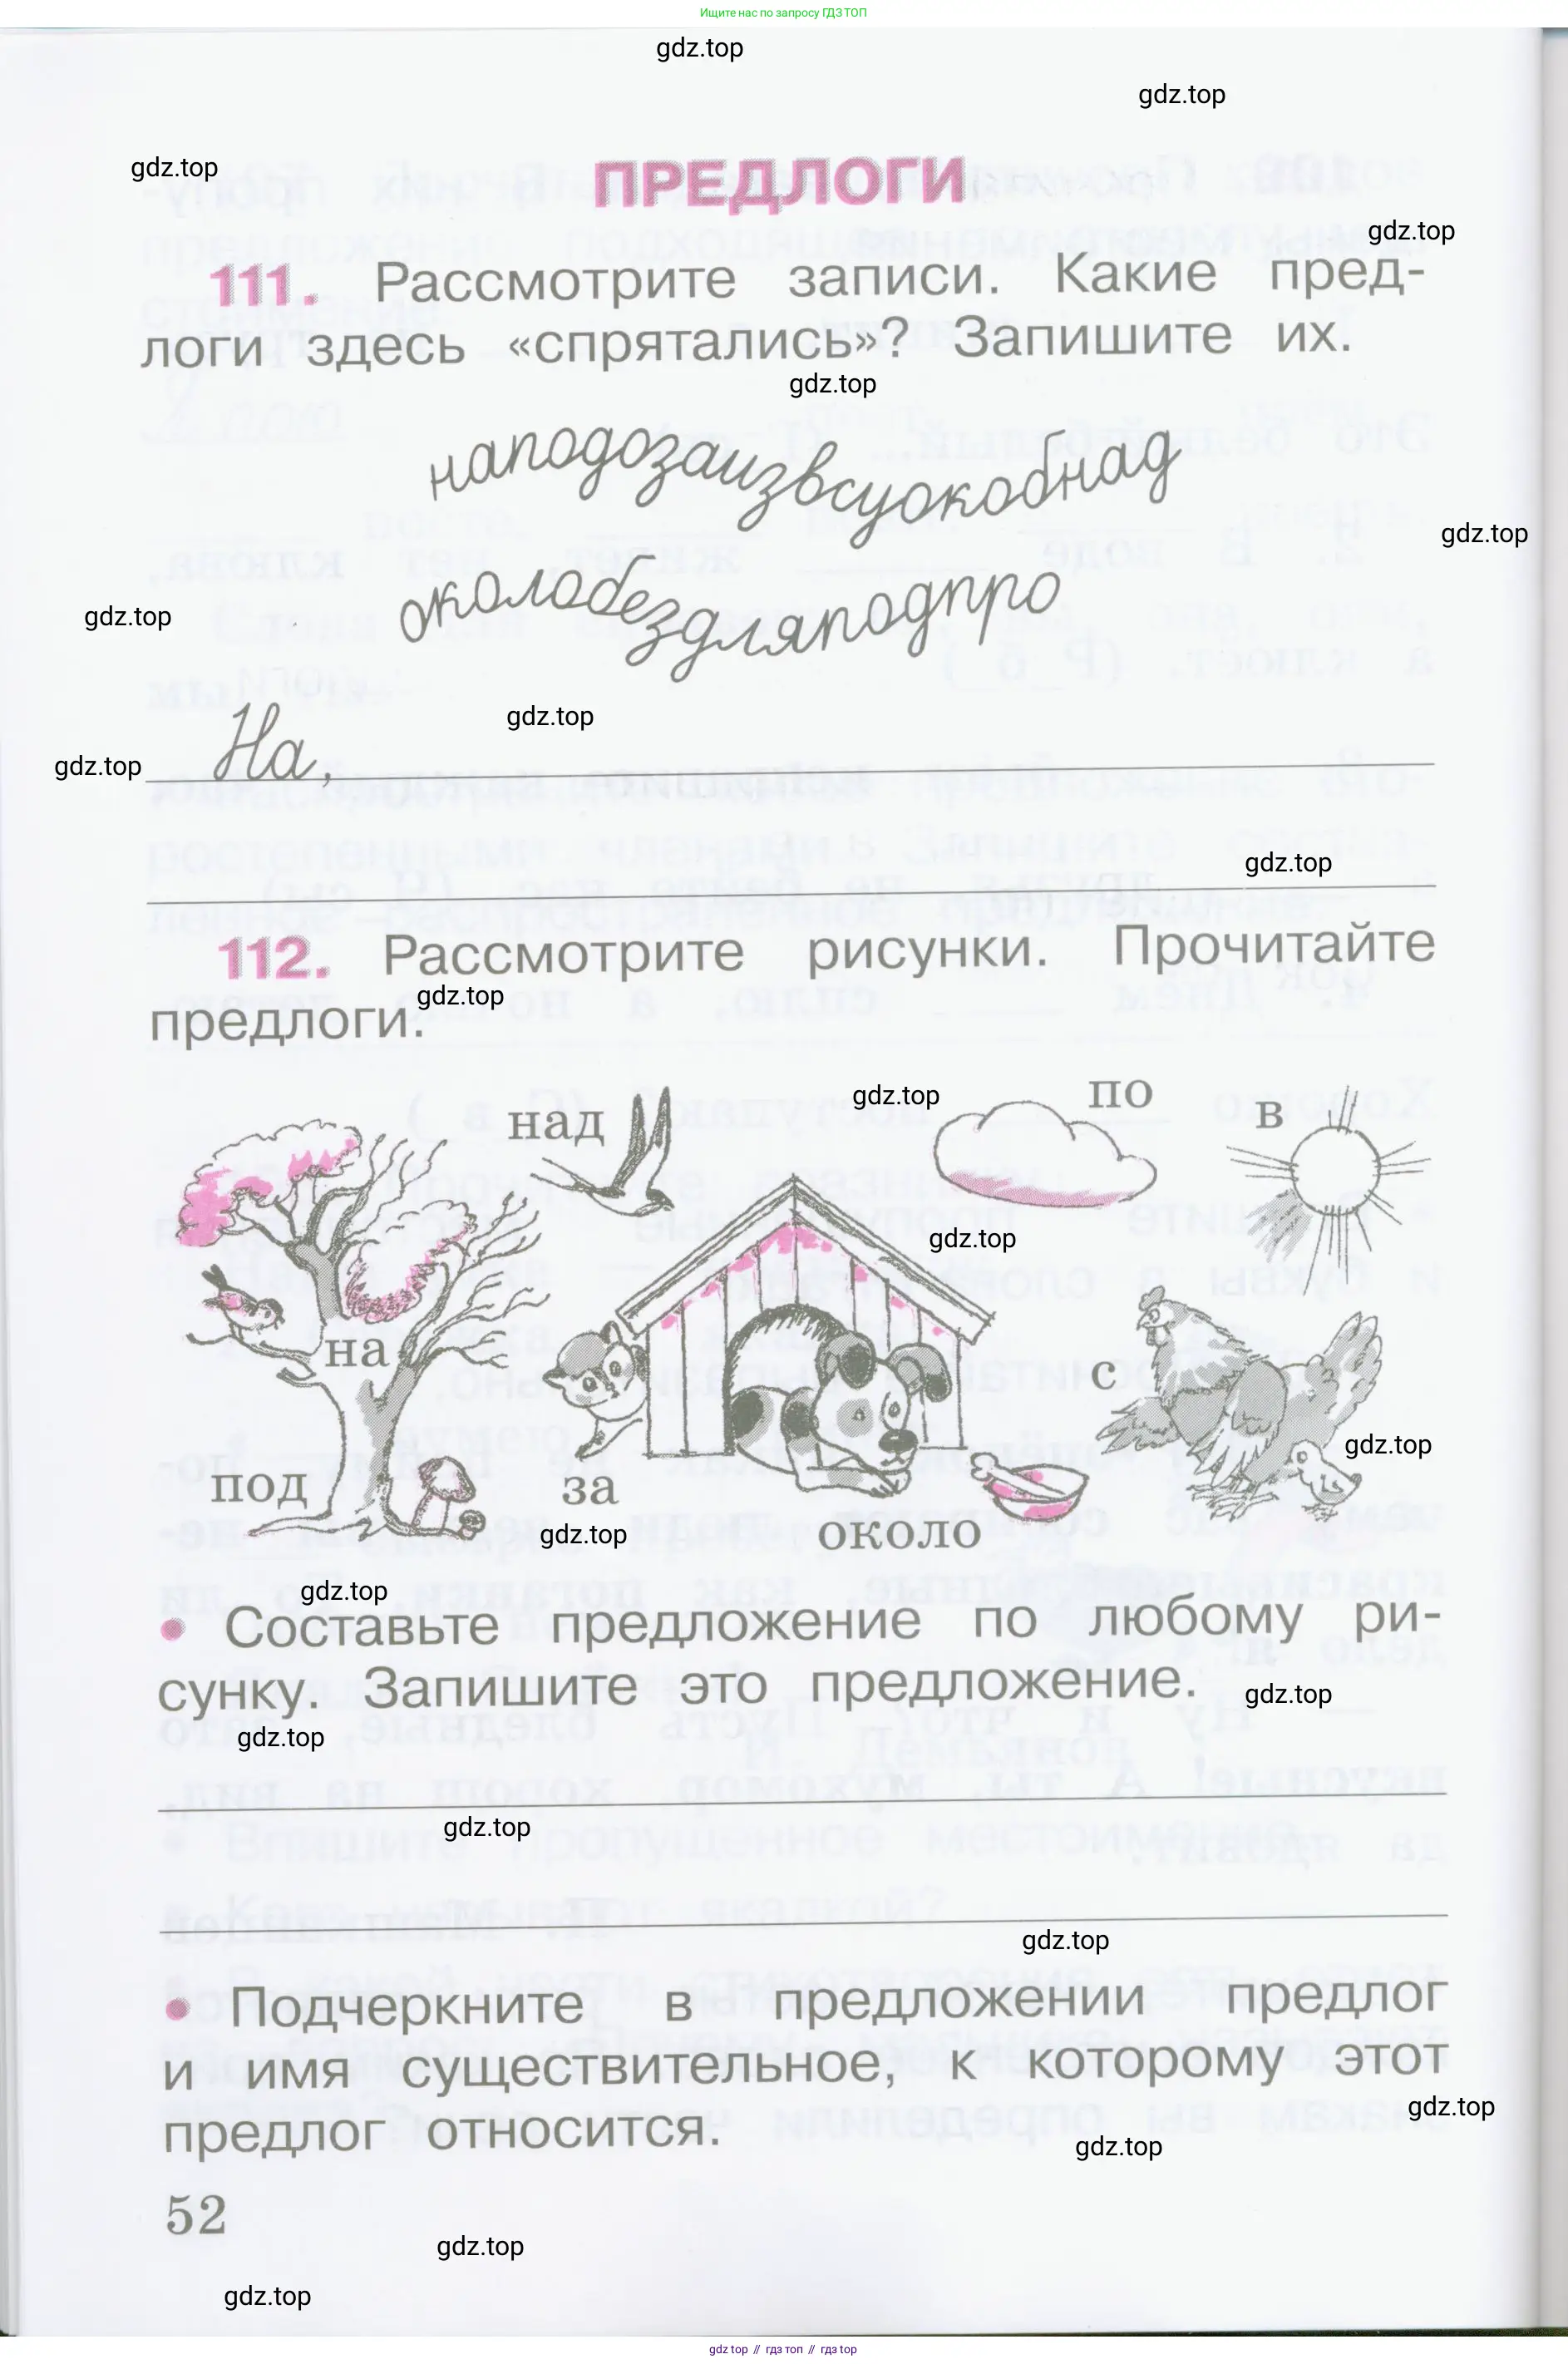 Ищите нас по запросу ГДЗ ТОП
gdz.top
gdz.top
gdz.top
ПРЕДЛОГИ
gdz.top
111. Рассмотрите записи. Какие пред-
логи здесь «спрятались»? Запишите их.
gdz.top
наподозаизвсуокобнад
gdz.top
околобездляподпро
gdz.top
gdz.top
На,
gdz.top
gdz.top
112. Рассмотрите рисунки. Прочитайте
предлоги.
gdz.top
над
gdz.top
по
в
gdz.top
на
с
gdz.top
под
за
gdz.top
около
gdz.top
• Составьте предложение по любому ри-
сунку. Запишите это предложение.
gdz.top
gdz.top
gdz.top
gdz.top
• Подчеркните в предложении предлог
и имя существительное, к которому этот
предлог относится.
gdz.top
gdz.top
52
gdz.top
gdz.top
gdz top // гдз топ // гдз top